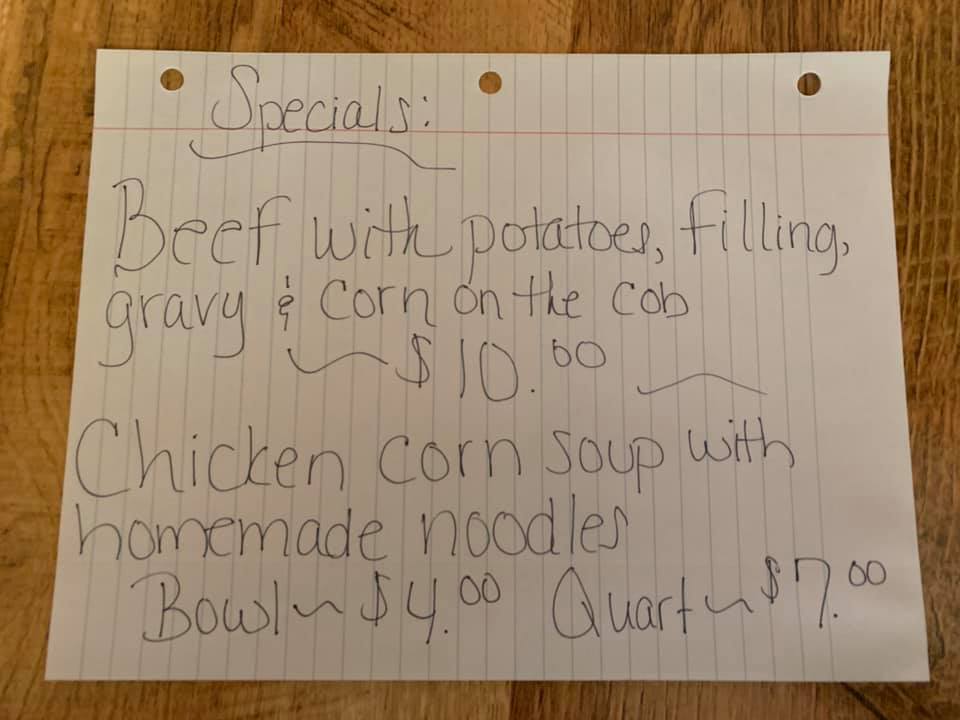 Specials:
Beef with potatoes, filling,
gravy & corn on the cob
~ $10.00 ~
Chicken corn soup with
homemade noodles
Bowl ~ $4.00 Quart ~ $7.00